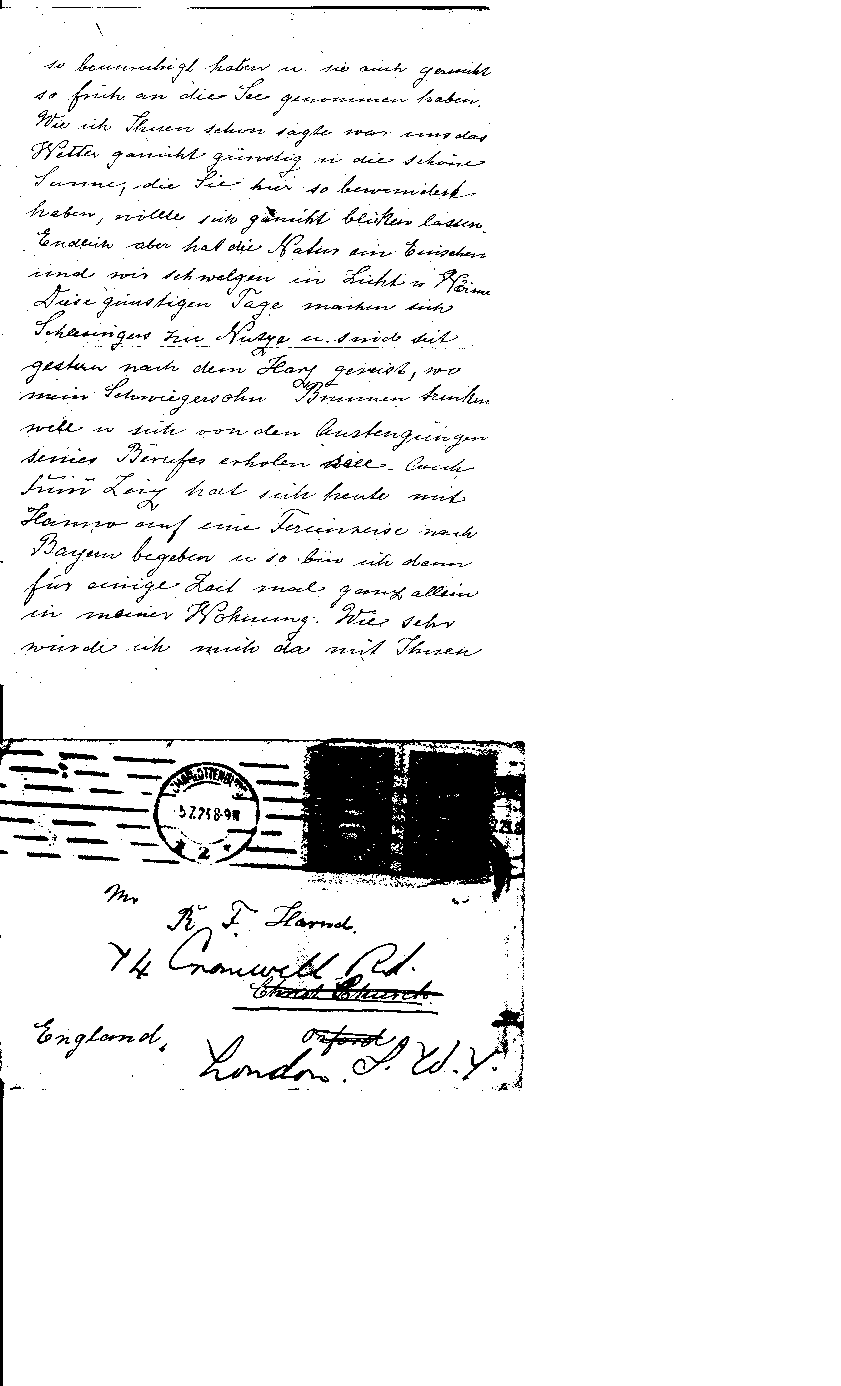 so beunruhigt haben u. sie auch garnicht
so früh an die See genommen haben.
Wie ich Ihnen schon sagte war uns das
Wetter garnicht günstig u die schöne
Sonne, die Sie hier so bewundert
haben, wollte sich garnicht blicken lassen.
Endlich aber hat die Natur ein Einsehen
und wir schwelgen in Licht u Wärme
Diese günstigen Tage machen sich
Schlesingers zu Nutze u. sind seit
gestern nach dem Harz gereist, wo
mein Schwiegersohn Brunnen trinken
will u sich von den Anstengungen
seines Berufes erholen soll. Auch
hat sich heute mit
Hanno auf eine Ferienreise nach
Bayern begeben u so bin ich denn
für einige Zeit mal ganz allein
in meiner Wohnung. Wie sehr
würde ich mich da mit Ihnen
CHARLOTTENBURG
5.7.23 8-9N
2
Mr
R F. Harrod.
74 Cromwell Rd.
Christ Church
England.
Oxford
London. S. W. 7.